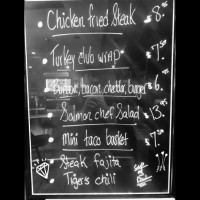 Chicken fried Steak $8.95
Turkey club wrap $7.50
bacon, cheddar, burger $6.95
Salmon chef Salad $13.95
mini taco basket $7.50
Steak fajita
Tiger's chili